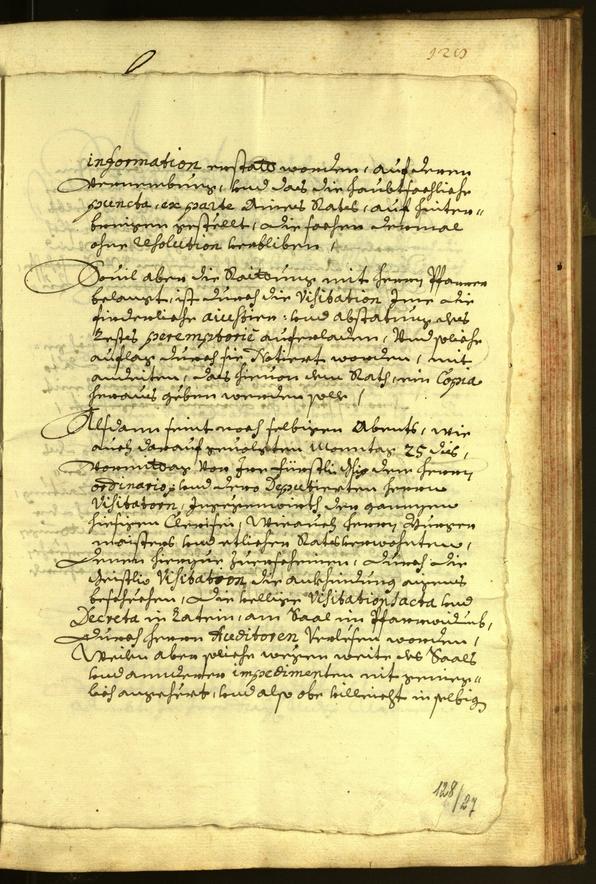 129
information erstatt worden, auf deren
Vernembung, und das die haubtsechliche
puncta, ex parte Aines Rats, auf hinter¬
bringen gestellt, die sachen dermal
ohne resolution verbliben /
Souil aber die Raittung mit herrn Pfarrer
belangt, ist durch die Visitation Ime die
fürderliche und abstattung des
Rests peremptoriè auferladen, Und solche
auflag durch sie Notiert worden, mit
andeuten, das hieuon dem Rath, ein Copia
heraus geben werden solle /
Alsdann seint noch selbigen Abents, wie
auch darauf geuolgten Monntag 25 dis,
Vormittag Von Irer Fürstli: dem herrn
ordinario, und dero Deputierten herrn
Visitatorn, Ingegenwirth der ganntzen
hiesigen Clerisey, Wie auch herrn Burger
maisters und etlichen Ratsverwohnten,
denen hierzue Zuerscheinen, durch die
Geistlic Visitatorn die ankhindung
beschechen, die völlige Visitations acta und
Decreta in Latein, am Saal im Pfarrwidumb,
durch herrn Auditoren Verlesen worden,
Weiln aber solche wegen weite des Saals
und annderer impedimenten nit genueg¬
lich angehört, und also obe villeicht in selbig
128/27